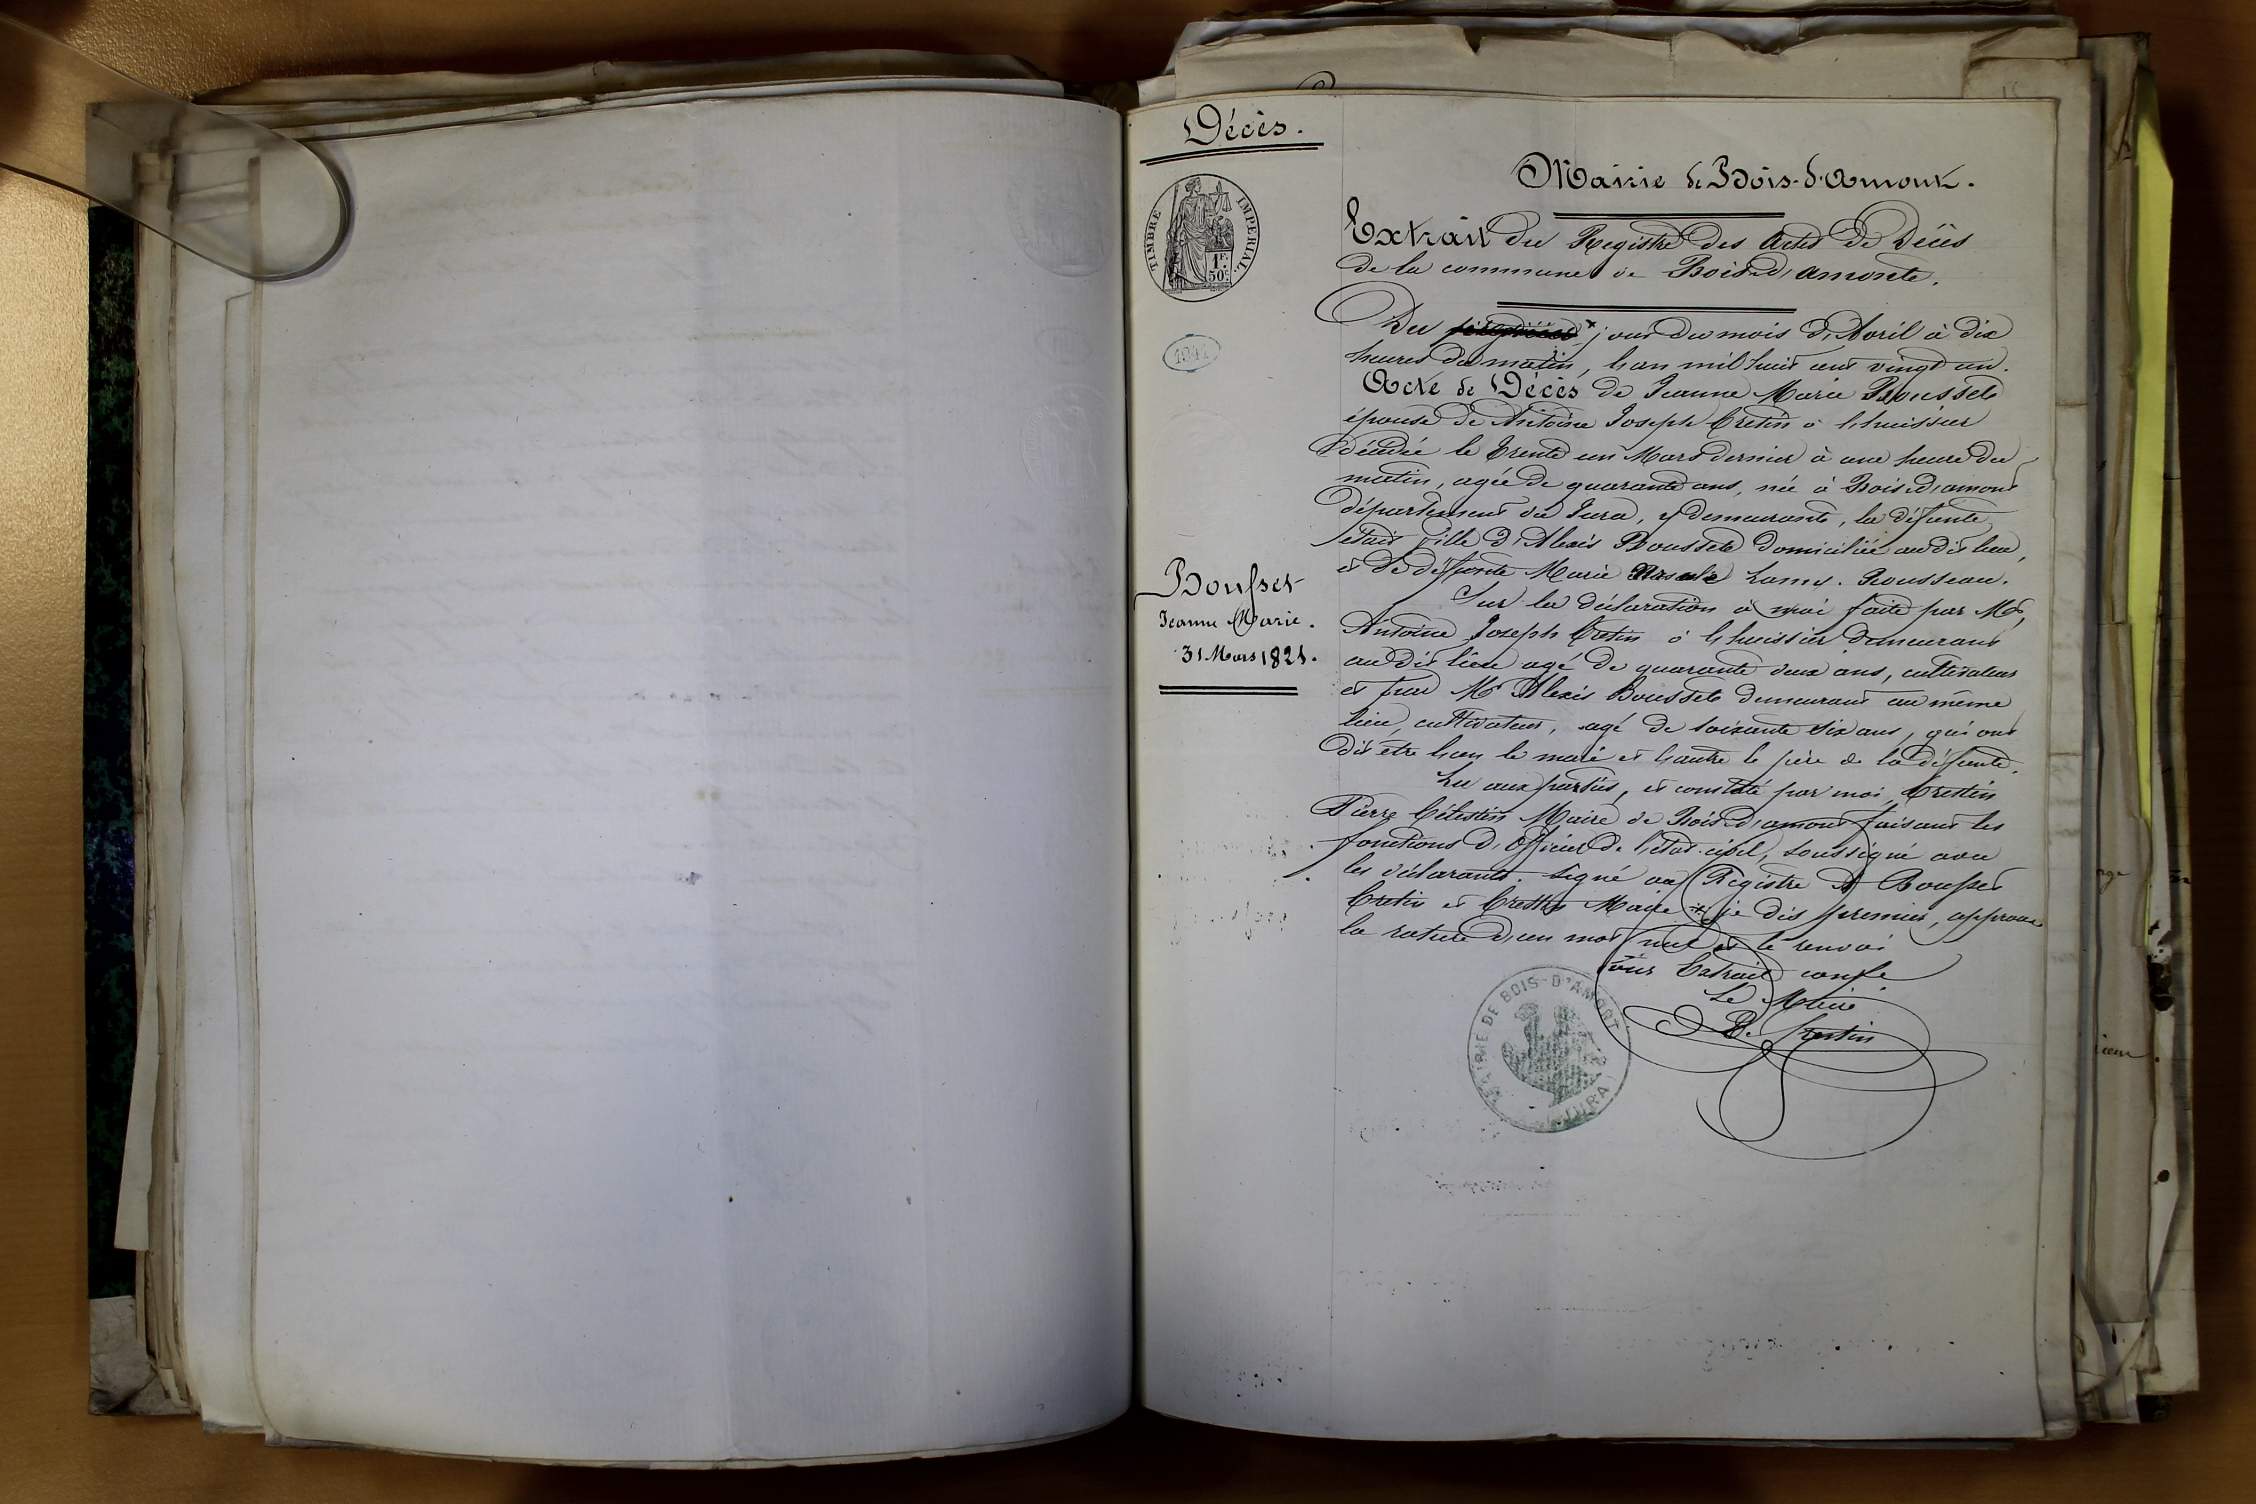 Décès.
TIMBRE IMPERIAL.
1F.
50c
Mairie de Bois-d'Amont.
Extrait du Registre des Actes de Décès
de la commune de Bois-d'amont.
Du * jour du mois d'Avril à dix
heures du matin, l'an mil huit cent vingt un.
Acte de Décès de Jeanne Marie Bousset
épouse de Antoine Joseph Cretin à l'huissier
décédée le trente un Mars dernier à une heure du
matin, agée de quarante ans, née à Bois-d'amont
département du Jura, y demeurante, la défunte
était fille d'Alexis Bousset domicilié au dit lieu,
et de défunte Marie Lamy-Rousseau.
Bousset
Jeanne Marie.
31 Mars 1821.
Sur la déclaration à moi faite par Mr
Antoine Joseph Cretin à l'huissier demeurant
au dit lieu agé de quarante deux ans, cultivateur
et par Mr Alexis Bousset demeurant au même
lieu, cultivateur, agé de soixante six ans, qui ont
dit être l'un le mari et l'autre le père de la défunte.
Lu aux parties, et constaté par moi, Crestin
Pierre Célestin Maire de Bois-d'amont faisant les
fonctions d'officier de l'état-civil, soussigné avec
les déclarants. Signé au Registre A Bousset
Cretin et Crestin Maire * je dis premier, approuve
la rature d'un mot nul et le renvoi
Pour Extrait conf.e
Le Maire
Crestin
MAIRIE DE BOIS-D'AMONT
JURA